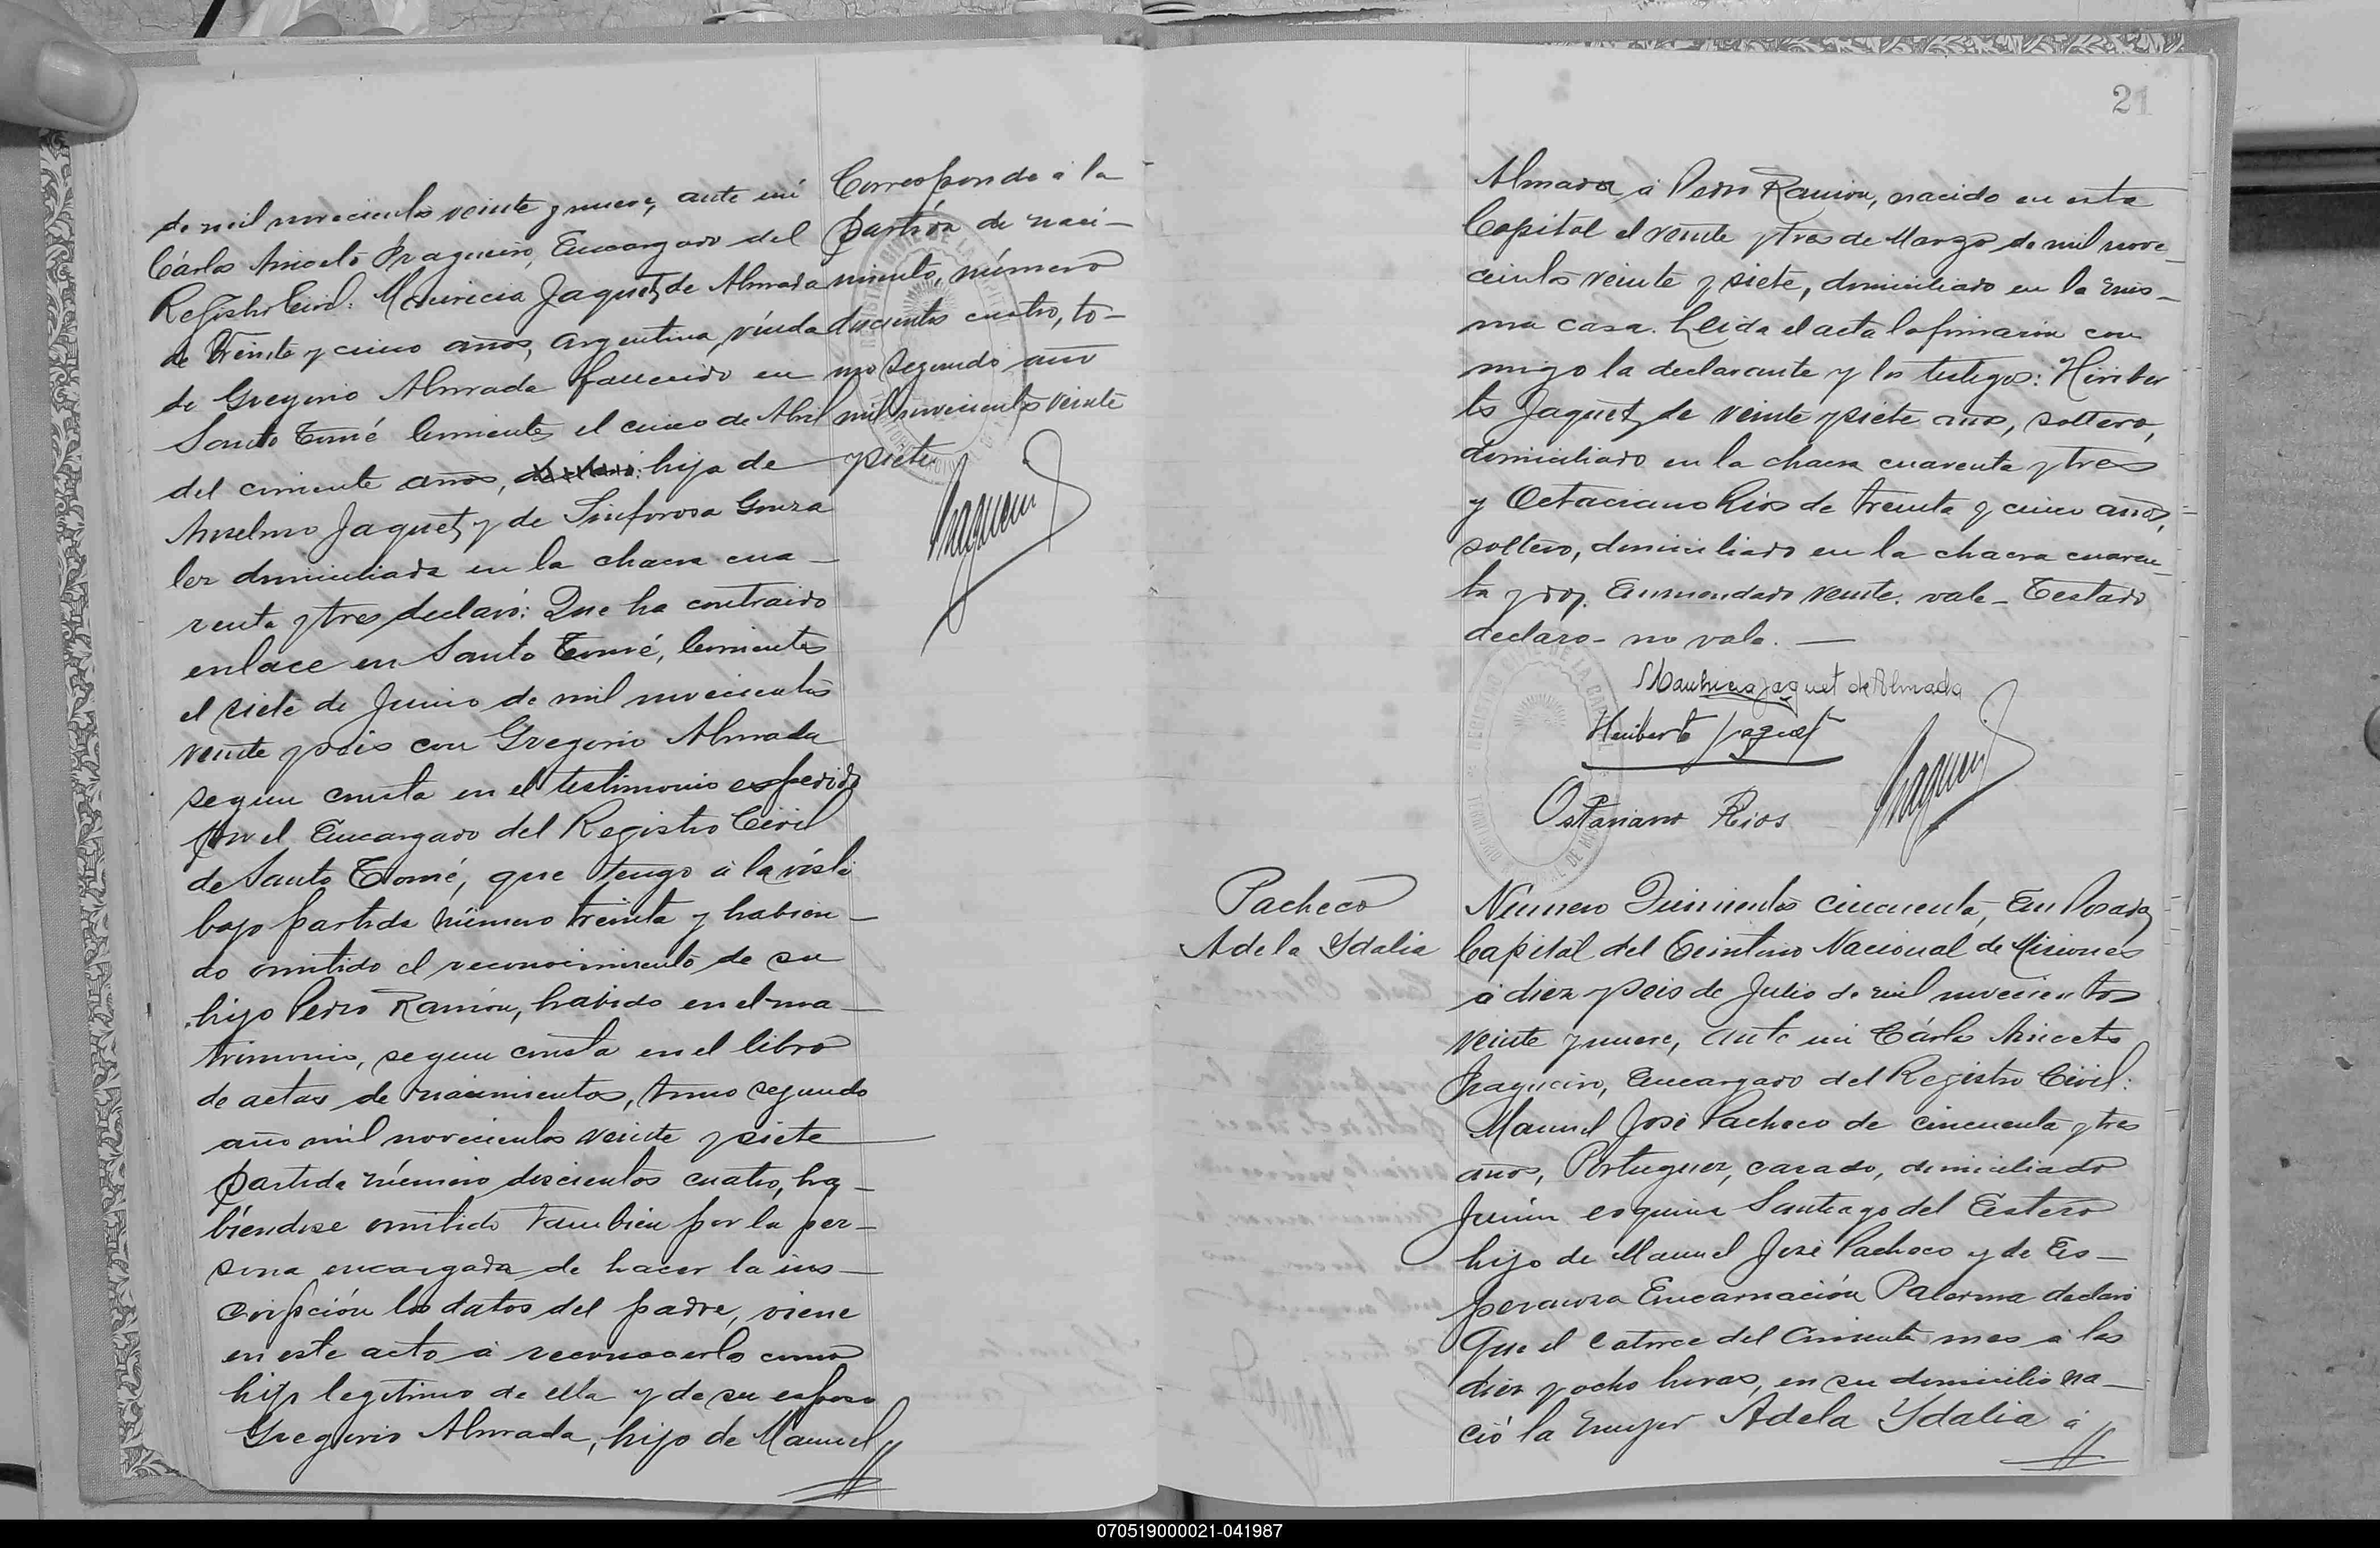 de mil novecientos veinte y nueve, ante mí
Cárlos Aniceto Fragueiro, Encargado del
Registro Civil: Mauricia Jaquet de Almada
de treinta y cinco años, argentina, viuda
de Gregorio Almada fallecido en
Santo Tomé Corrientes el cinco de Abril
del corriente años, declaró: hija de
Anselmo Jaquet y de Sinforosa Gonza
lez domiciliada en la chacra cua-
renta y tres declaró: Que ha contraido
enlace en Santo Tomé, Corrientes
el siete de Junio de mil novecientos
veinte y seis con Gregorio Almada
segun consta en el testimonio espedido
por el Encargado del Registro Civil
de Santo Tomé, que tengo á la vista
bajo partida número treinta y habien-
do omitido el reconocimiento de su
hijo Pedro Ramón, habido en el ma-
trimonio, segun consta en el libro
de actas de nacimientos, tomo segundo
año mil novecientos veinte y siete
partida número doscientos cuatro, ha-
biendose omitido tambien por la per-
sona encargada de hacer la ins-
cripción los datos del padre, viene
en este acto á reconocerlo como
hijo legitimo de ella y de su esposo
Gregorio Almada, hijo de Manuel
Corresponde á la
partida de naci-
miento, número
doscientos cuatro, to-
mo segundo año
mil novecientos veinte
y siete
21
Almada á Pedro Ramón, nacido en esta
Capital el veinte y tres de Marzo de mil nove-
cientos veinte y siete, domiciliado en la mis-
ma casa. Leida el acta la firmaron con
migo la declarante y los testigos: Heriber
to Jaquet de veinte y siete años, soltero,
domiciliado en la chacra cuarenta y tres
y Octaciano Rios de treinta y cinco años,
soltero, domiciliado en la chacra cuaren-
ta y dos. Enmendado veinte. vale - Testado
declaro - no vale. —
Mauricia Jaquet de Almada
Heriberto Jaquet
Ostaciano Rios
Pacheco
Adela Ydalia
Número Quinientos cincuenta, En Posadas
Capital del Territorio Nacional de Misiones
á diez y seis de Julio de mil novecientos
veinte y nueve, ante mi Cárlos Aniceto
Fragueiro, Encargado del Registro Civil:
Manuel José Pacheco de cincuenta y tres
años, Portuguez, casado, domiciliado
Junín esquina Santiago del Estero
hijo de Manuel José Pacheco y de Es-
peranza Encarnación Palerma declaró
Que el catorce del corriente mes á las
diez y ocho horas, en su domicilio na-
ció la mujer Adela Ydalia á
070519000021-041987